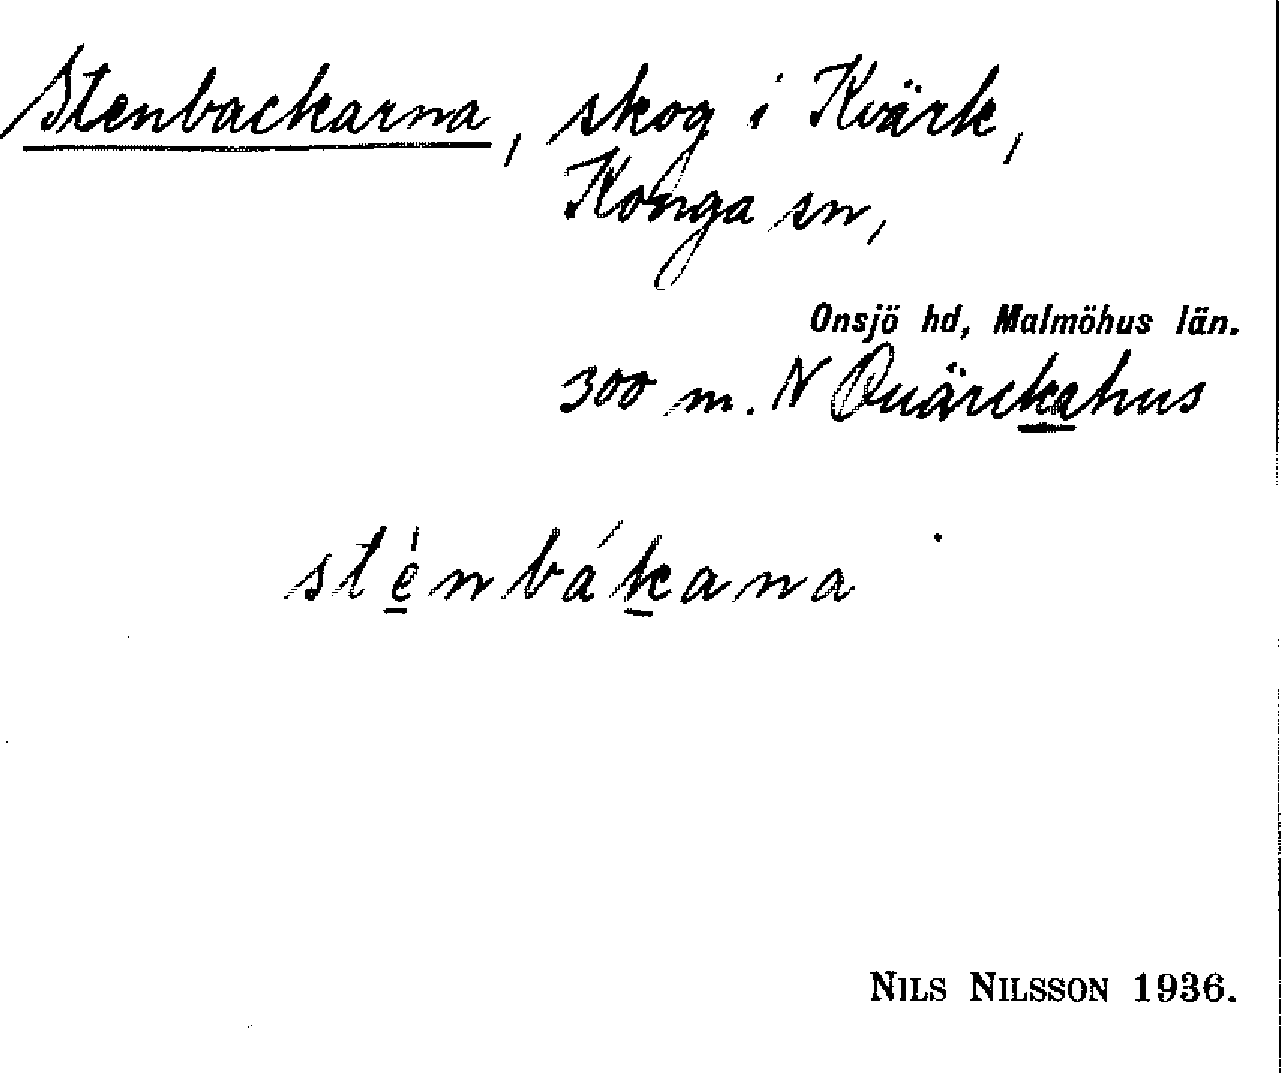 Stenbackarna, skog i Kvärk,
Konga sn,
Onsjö hd, Malmöhus län.
300 m. N Quärckahus
sténbákana
NILS NILSSON 1936.